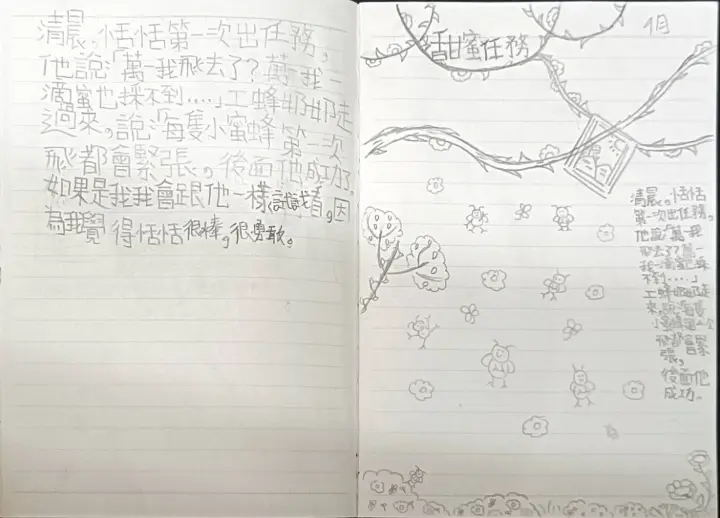 清晨,恬恬第一次出任務,
他說「萬一我飛去了?萬一我一
滴蜜也採不到....」工蜂奶奶走
過來,說「每隻小蜜蜂第一次
飛都會緊張,後面他成功了。
如果是我我會跟他一樣試試看,因
為我覺得恬恬很棒,很勇敢。
甜蜜任務
清晨,恬恬
第一次出任務,
他說「萬一我
飛去了?萬一
我一滴蜜也採
不到....」
工蜂奶奶走
來,說
小蜜蜂第一次
飛都會緊
張,
後面他
成功。